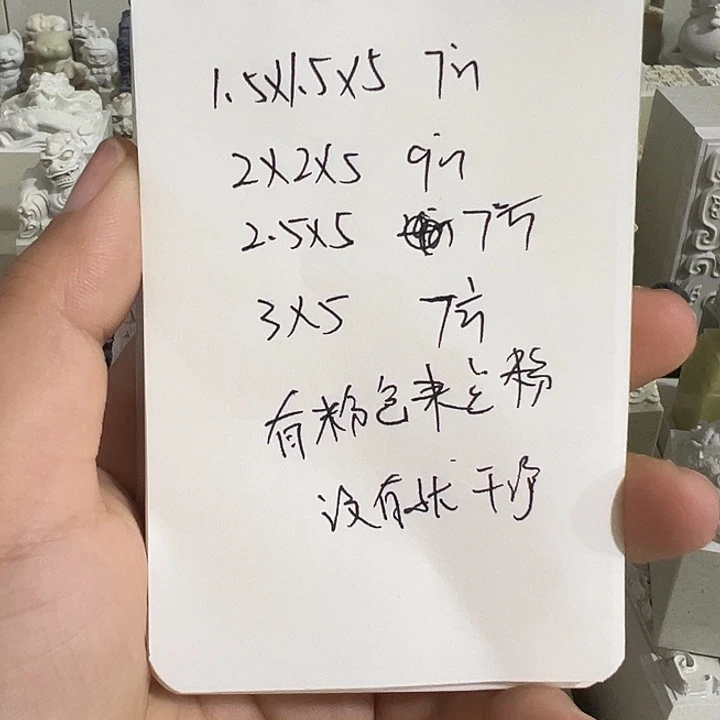 1.5X1.5X5 7方
2X2X5 9方
2.5X5 7方
3X5 7方
有粉色来粉
没有就干净